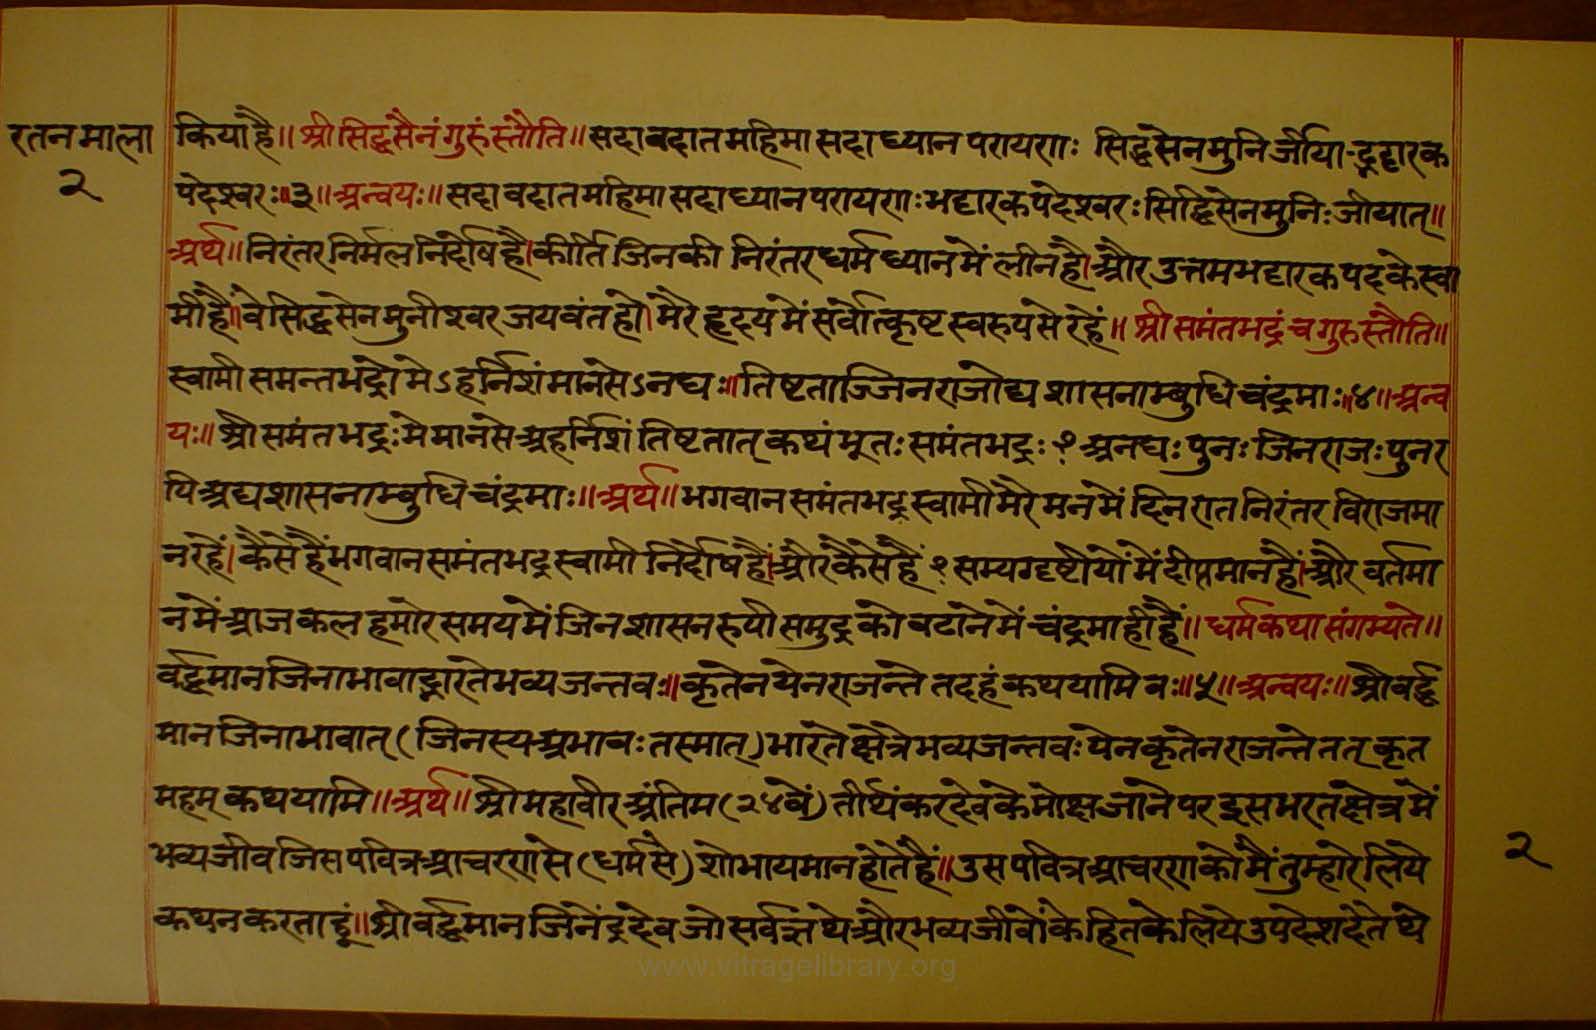 रतनमाला
२
किया है॥ श्री सिद्धसैनं गुरुं स्तौति॥ सदावदातमहिमा सदा ध्यान परायणः सिद्धसेनमुनिर्जीया-द्भट्टारक
पदेश्वरः॥३॥ अन्वयः॥ सदावदातमहिमा सदा ध्यानपरायणः भट्टारकपदेश्वरः सिद्धिसेनमुनिः जीयात्॥
अर्थ॥ निरंतर निर्मल निर्दोष है। कीर्ति जिनकी निरंतर धर्मध्यान में लीन है। और उत्तम भट्टारक पद के स्वा
मी हैं॥ वे सिद्धसेन मुनीश्वर जयवंत हो। मेरे हृदय में सर्वोत्कृष्ट स्वरुप से रहें॥ श्री समंतभद्रं च गुरु स्तौति॥
स्वामी समन्तभद्रो मेऽहर्निशं मानसेऽनघः॥ तिष्टताज्जिनराजोद्य शासनाम्बुधि चंद्रमाः॥४॥ अन्व
यः॥ श्री समंतभद्रः मे मानसे अहर्निशं तिष्टतात् कथं भूतः समंतभद्रः? अनघः पुनः जिनराजः पुनर
पि अद्य शासनाम्बुधि चंद्रमाः॥ अर्थ॥ भगवान समंतभद्र स्वामी मेरे मन में दिन रात निरंतर विराजमा
न रहें। कैसे हैं भगवान समंतभद्र स्वामी निर्दोष हैं। और कैसे हैं ? सम्यग्दृष्टीयों में दीप्तमान हैं। और वर्तमा
न में आजकल हमारे समय में जिनशासनरुपी समुद्र को बटाने में चंद्रमा ही हैं॥ धर्मकथा संगम्यते॥
वर्द्धमानजिनाभावाद्भारते भव्यजन्तवः॥ कृतेन येन राजन्ते तदहं कथयामि वः॥५॥ अन्वयः॥ श्री वर्द्ध
मान जिनाभावात् (जिनस्य अभावः तस्मात्) भारते क्षेत्रे भव्यजन्तवः येन कृतेन राजन्ते तत् कृत
महम् कथयामि॥ अर्थ॥ श्री महावीर अंतिम (२४वें) तीर्थंकरदेव के मोक्ष जाने पर इस भरतक्षेत्र में
भव्यजीव जिस पवित्र आचरण से (धर्म से) शोभायमान होते हैं॥ उस पवित्र आचरण को मैं तुम्हारे लिये
कथन करता हूं॥ श्री वर्द्धमान जिनेंद्रदेव जो सर्वज्ञ थे और भव्यजीवों के हित के लिये उपदेश देते थे
२
www.vitragelibrary.org